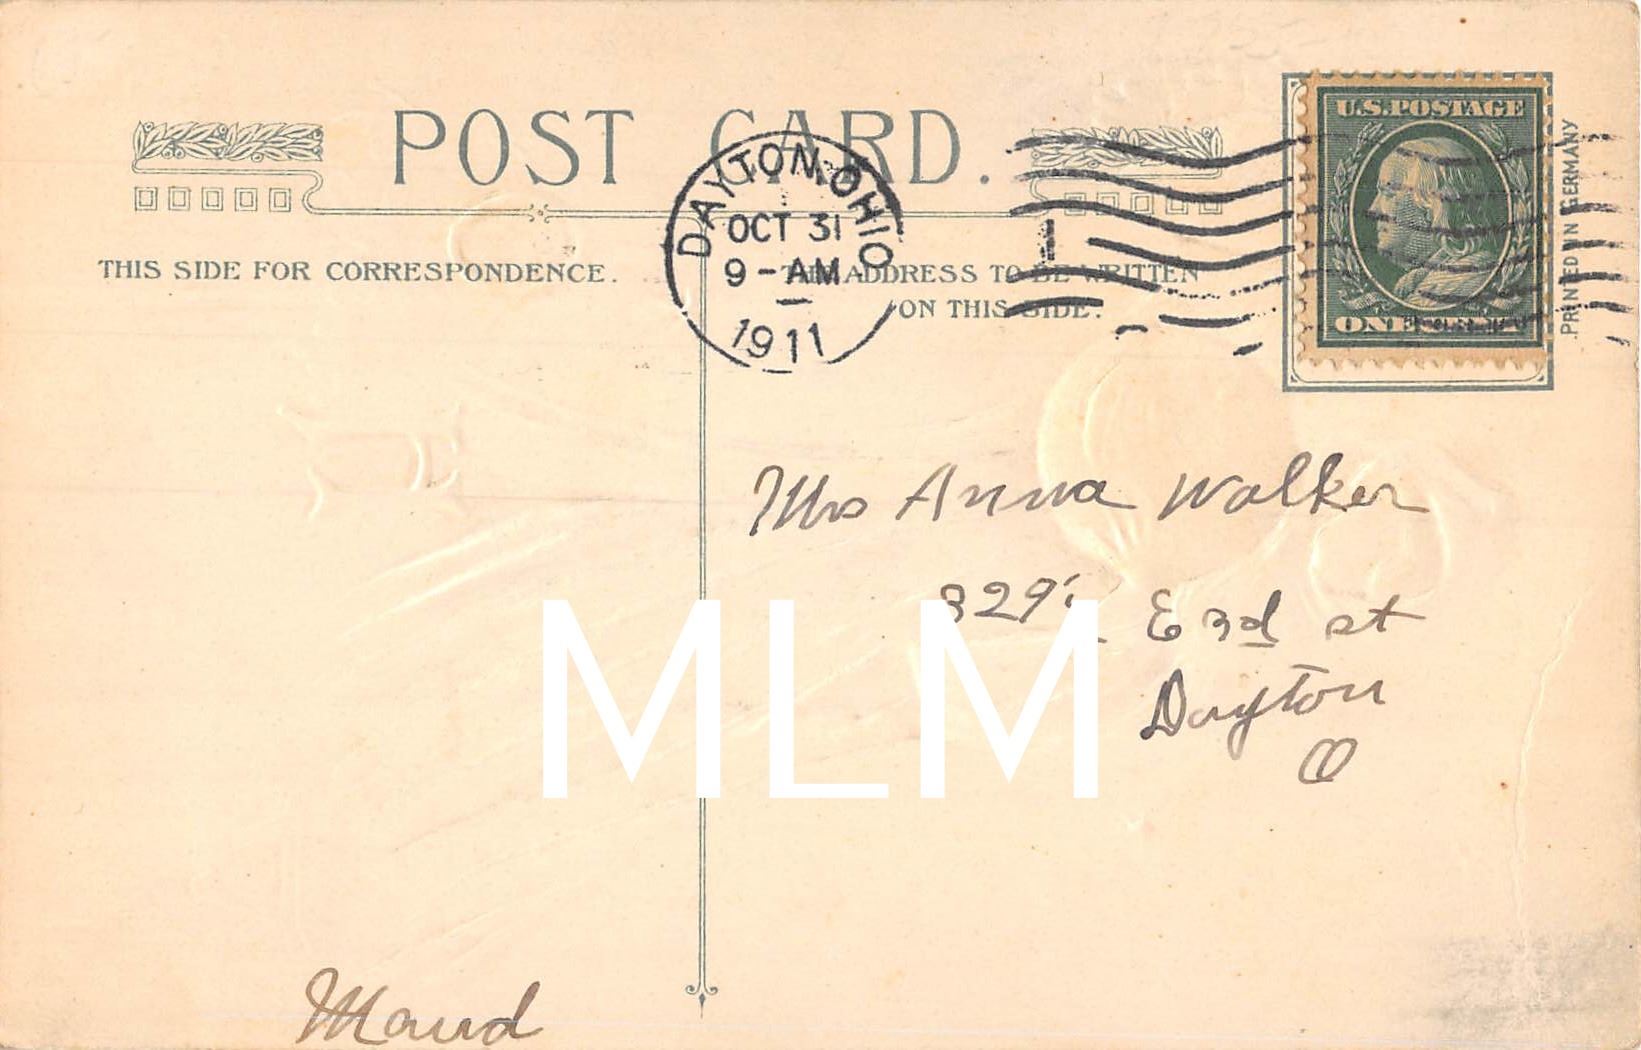 POST CARD.
U.S. POSTAGE
DAYTON, OHIO
OCT 31
9-AM
1911
1
THIS SIDE FOR CORRESPONDENCE.
THE ADDRESS TO BE WRITTEN
ON THIS SIDE.
ONE
PRINTED IN GERMANY
Mrs Anna Walker
E 3rd st
Dayton
O
MLM
Maud